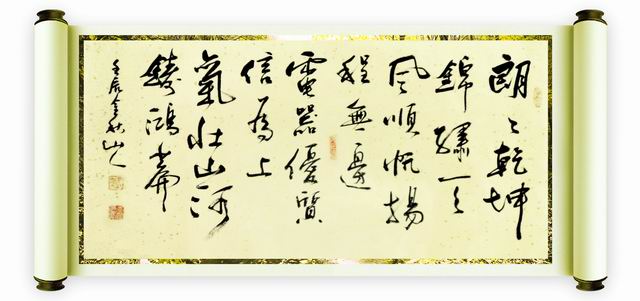 朗〻乾坤
錦繡天
風順帆揚
程無邊
電器優質
信為上
氣壯山河
鑄鴻篇
壬辰金秋山人